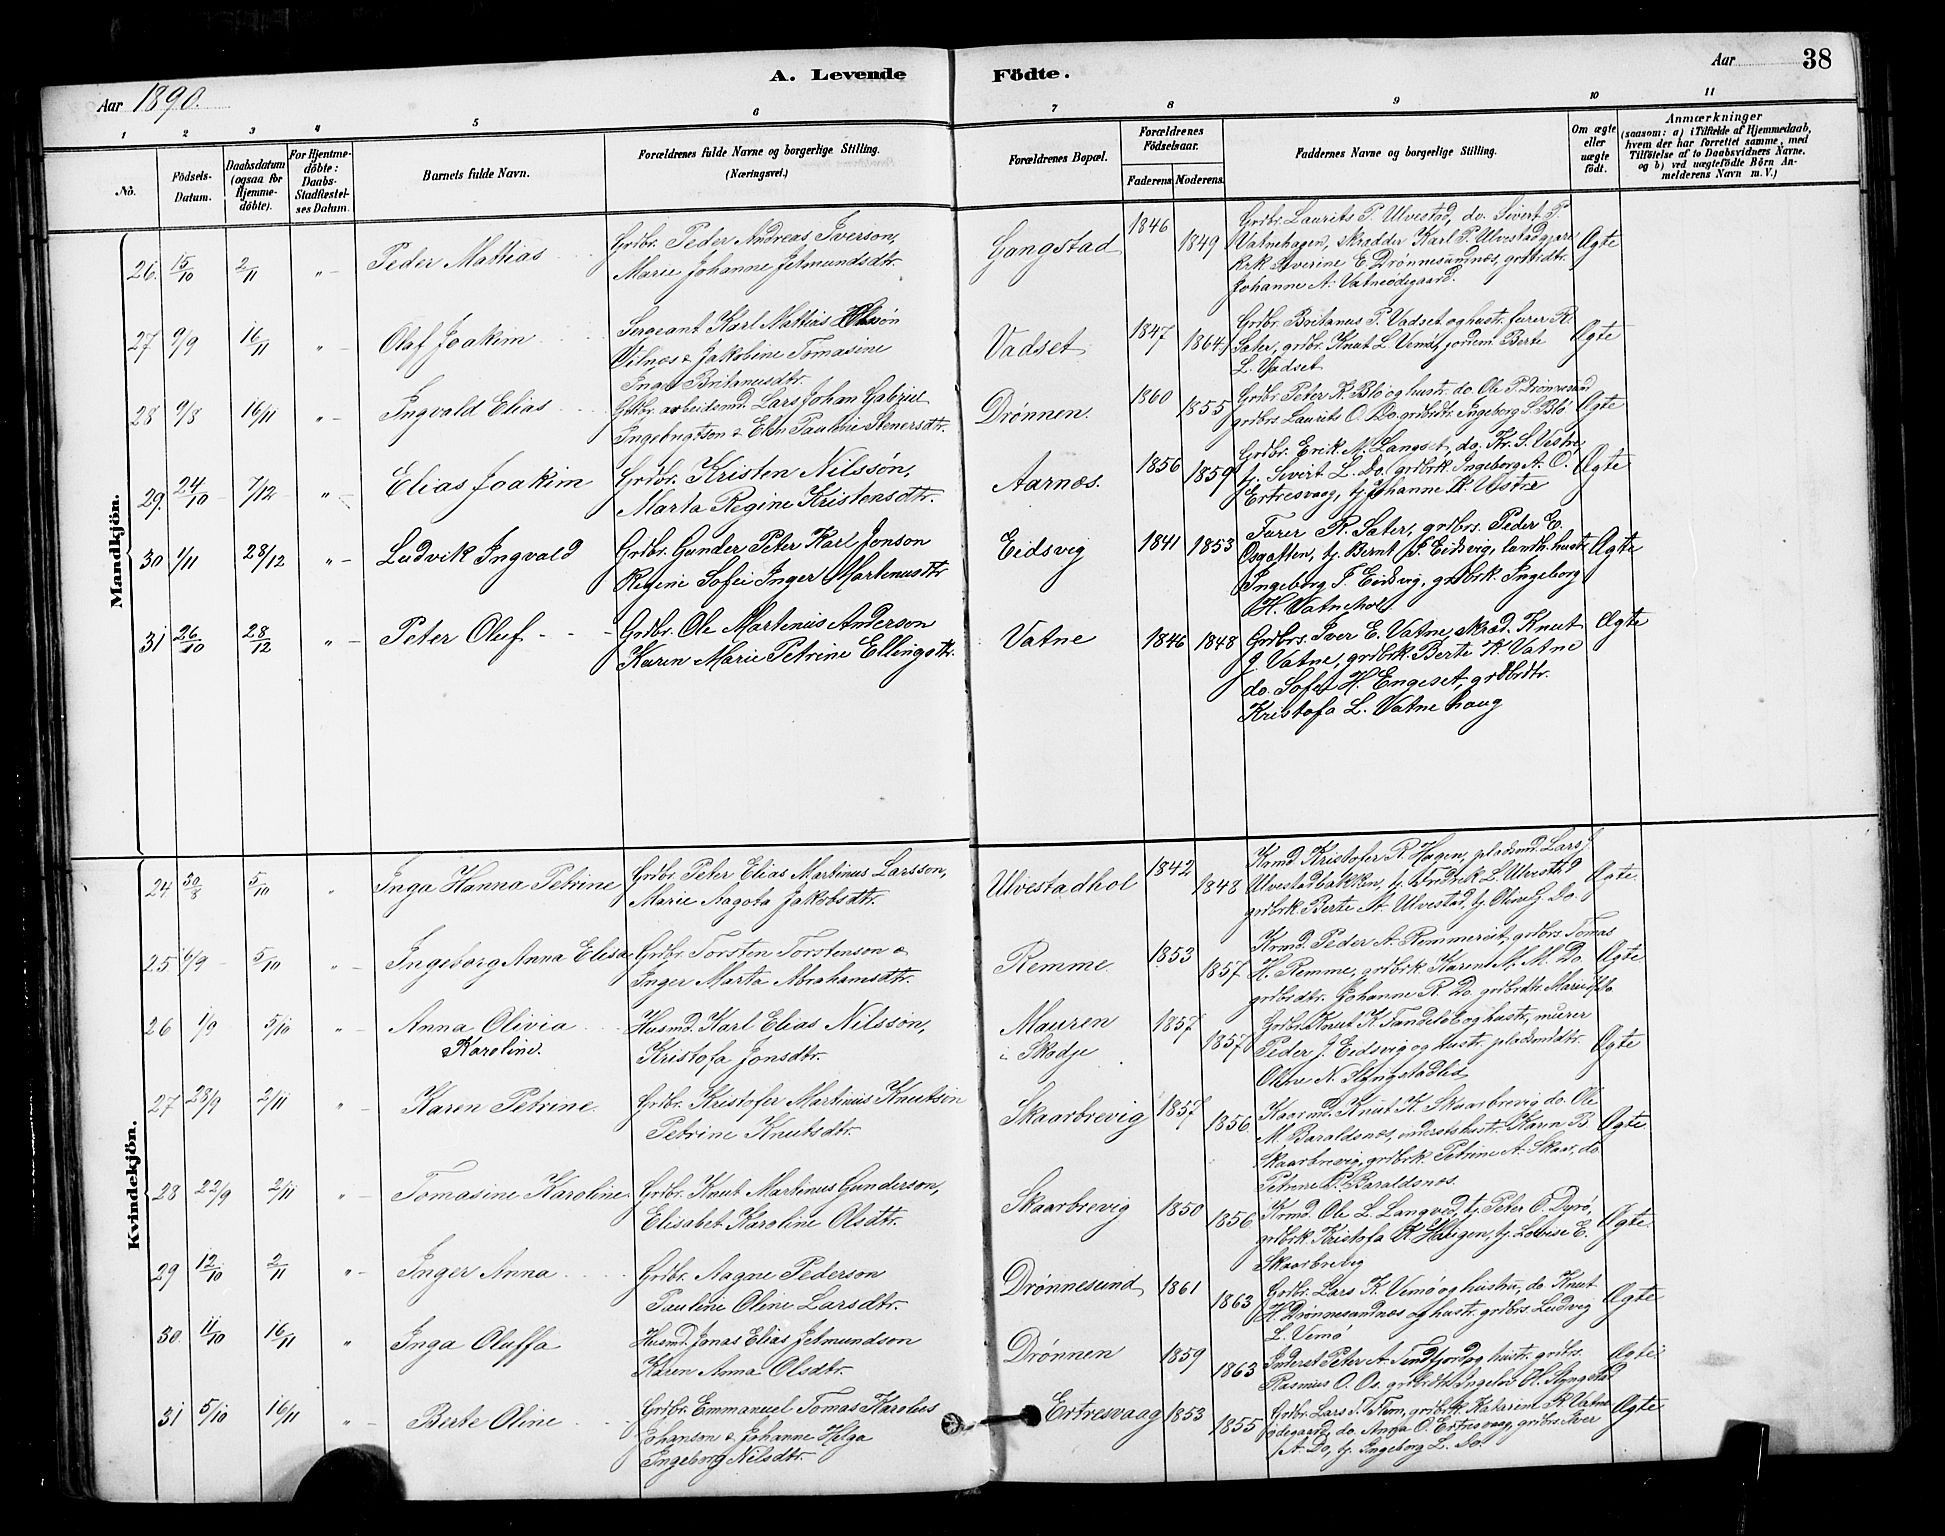 A. Levende Födte.
Aar 1890.
Aar 38
1 2 3 4 5 6 7 8 9 10 11
No.
Födsels-Datum.
Daabsdatum (ogsaa for Hjemme-döbte).
For Hjemme-döbte: Daabs-Stadfæstelses Datum.
Barnets fulde Navn.
Forældrenes fulde Navne og borgerlige Stilling.
(Næringsvei.)
Forældrenes Bopæl.
Forældrenes Födselsaar.
Faderens. Moderens.
Faddernes Navne og borgerlige Stilling.
Om ægte eller uægte födt.
Anmærkninger
(saasom: a) i Tilfælde af Hjemmedaab,
hvem der har forrettet samme, med
Tilföielse af to Daabsvidners Navne.
og b) ved uægtefödte Börn An-
melderens Navn m. V.)
Mandkjön.
26. 15/10 2/11 " Peder Mathias Grdbr. Peder Andreas Iverson, Gangstad 1846 1849 Grdbr. Laurits P. Ulvestad, do. Sivert P. Ægte
Marie Johanne Jetmundsdtr. Vatnehagen, skrædder Karl P. Ulvestad
Severine E. Drønnesundnes, grdbrdtr.
Johanne A. Vatneødegaard.
27 9/9 16/11 " Olaf Joakim Sergeant Karl Mattias Vadset 1847 1864 Grdbr. Britanus P. Vadset og hustr. furer R. Ægte
& Jakobine Tomasine Sater, grdbr. Knut L. Berte
Inga Britanusdtr. L. Vadset
28 9/8 16/11 " Ingvald Elias arbeidsmd. Lars Johan Gabriel Drønnen. 1860 1855 Grdbr. Peter R. Blø og hustr. do. Ole P. Ægte
Ingebrigtson & Pauline Stenersdtr. grdbrs Laurits O. Do. grdbrdtr. Ingeborg S. Blø
29. 24/10 7/12 " Elias Joakim Grdbr. Kristen Nilssön, Aarnæs. 1856 1859 Grdbr. Erik M. Langset, do. Kr. S. Vestre Ægte
Marta Regine Kristensdtr. tj. Sivert L. Do. grdbrk Ingeborg A. O.
Ertresvaag, tj. Johanne K. Vestre
30 1/11 28/12 " Ludvik Ingvald Grdbr. Gunder Peter Karl Jonson Eidsvig 1841 1853 Furer R. Sater, grdbrs. Peder E. Ægte
Regine Sofie Inger Martinusdtr tj. Bernt J. Eidsvig, hustr
Ingeborg T. Eidsvig, grdbrk. Ingeborg
H. Vatnehol
31 26/10 28/12 " Peter Oluf Grdbr. Ole Martinus Anderson Vatne 1846 1848 Grdbrs. Iver E. Vatne, skræd. Knut Ægte
Karen Marie Petrine Ellingsdtr. J. Vatne, grdbrk. Berte K. Vatne
do. Sofie H. Engeset, grdbrdtr.
Kristofa L. Vatnehaug
Kvindekjön.
24 30/8 5/10 " Inga Hanna Petrine Grdbr. Peter Elias Martinus Larsson, Ulvestadhol 1842 1848 Krmd. Kristofer R. Hagen, pladsmd. Lars J. Ægte
Marie Aagota Jakobsdtr. Ulvestadbakken, tj. Fredrik L. Ulvestad
grdbrk Berte M. Ulvestad, tj. Oline J. Do.
25 6/9 5/10 " Ingeborg Anna Elisa Grdbr. Torsten Torstenson & Remme. 1853 1857 Krmd. Peder A. Remmereit, grdbrs. Tomas Ægte
Inger Marta Abrahamsdtr. H. Remme, grdbrk. Karen M. M. Do.
grdbrdtr. Johanne R. Do. grdbrdtr. Marie Do
26 1/9 5/10 " Anna Olivia Husmd. Karl Elias Nilssøn, Mauren 1857 1857 Grdbr. Knut K. og hustr, murer Ægte
Karoline. Kristofa Jonsdtr. i Skodje Peder J. Eidsvig og hustr. pladsmdtr.
Oline N. Slyngstadlid
27 28/9 2/11 " Karen Petrine. Grdbr. Kristofer Martinus Knutson Skaarbrevig 1857 1856 Kaarmd. Knut K. Skaarbrevig do. Ole Ægte
Petrine Knutsdtr. M. Baraldsnæs, inderstshustr. Karen B.
Skaarbrevig, grdbrk. Petrine A. Skaar, do.
Petrine P. Baraldsnes.
28 22/9 2/11 " Tomasine Karoline Grdbr. Knut Martinus Gunderson, Skaarbrevig 1850 1856 Krmd. Ole L. Langved, tj. Peter O. Dyrø, Ægte.
Elisabet Karoline Olsdtr. grdbrk. Kristofa K. Haugen, tj. Lovise E.
Skaarbrevig
29 12/10 2/11 " Inger Anna Grdbr. Aagne Pederson Drønnesund 1861 1863 Grdbr. Lars K. Vemø og hustru, do. Knut Ægte
Pauline Oline Larsdtr. H. Drønnesundnæs og hustr. grdbrs Ludvig
L. Vemø
30. 11/10 16/11 " Inga Oluffa Husmd. Jonas Elias Jetmundson Drønnen 1859 1863 Inderst Peter A. Tennfjord og hustr. grdbrs. Ægte.
Karen Anna Olsdtr. Rasmus O. Os. grdbrdtr. H. Slyngstad
31 5/10 16/11 " Berte Oline Grdbr. Emmanuel Tomas Karolus Ertresvaag 1853 1855 Grdbr. Lars J. grdbrk Katarine K. Vatne Ægte
Johanson & Johanne Helga ødegaard, do. Anna O. Ertresvaag, grdbrs Iver
Ingeborg Nilsdtr. A. Do, tj. Ingeborg L. Do.